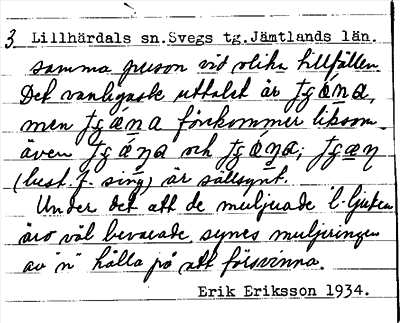 3 Lillhärdals sn. Svegs tg. Jämtlands län.
samma person vid olika tillfällen.
Det vanligaste uttalet är
men förekommer liksom
även och
(best. f. sing) är sällsynt.
Under det att de muljerade l-ljuden
äro väl bevarade, synes muljeringen
av "n" hålla på att försvinna.
Erik Eriksson 1934.